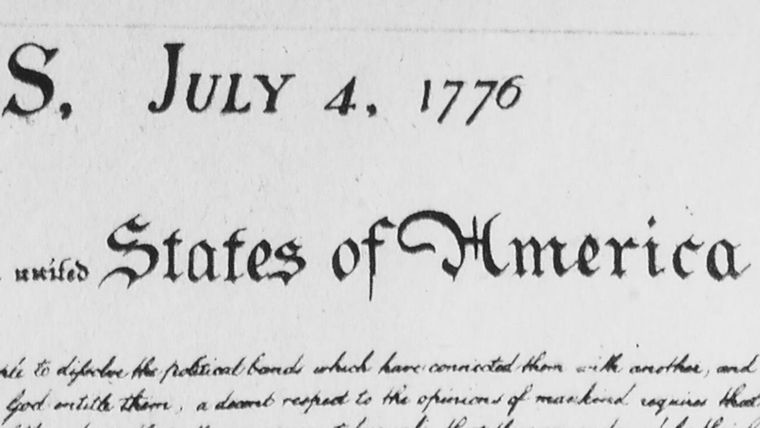 S, JULY 4, 1776
united States of America
to dissolve the political bands which have connected them with another, and
God entitle them, a decent respect to the opinions of mankind requires that